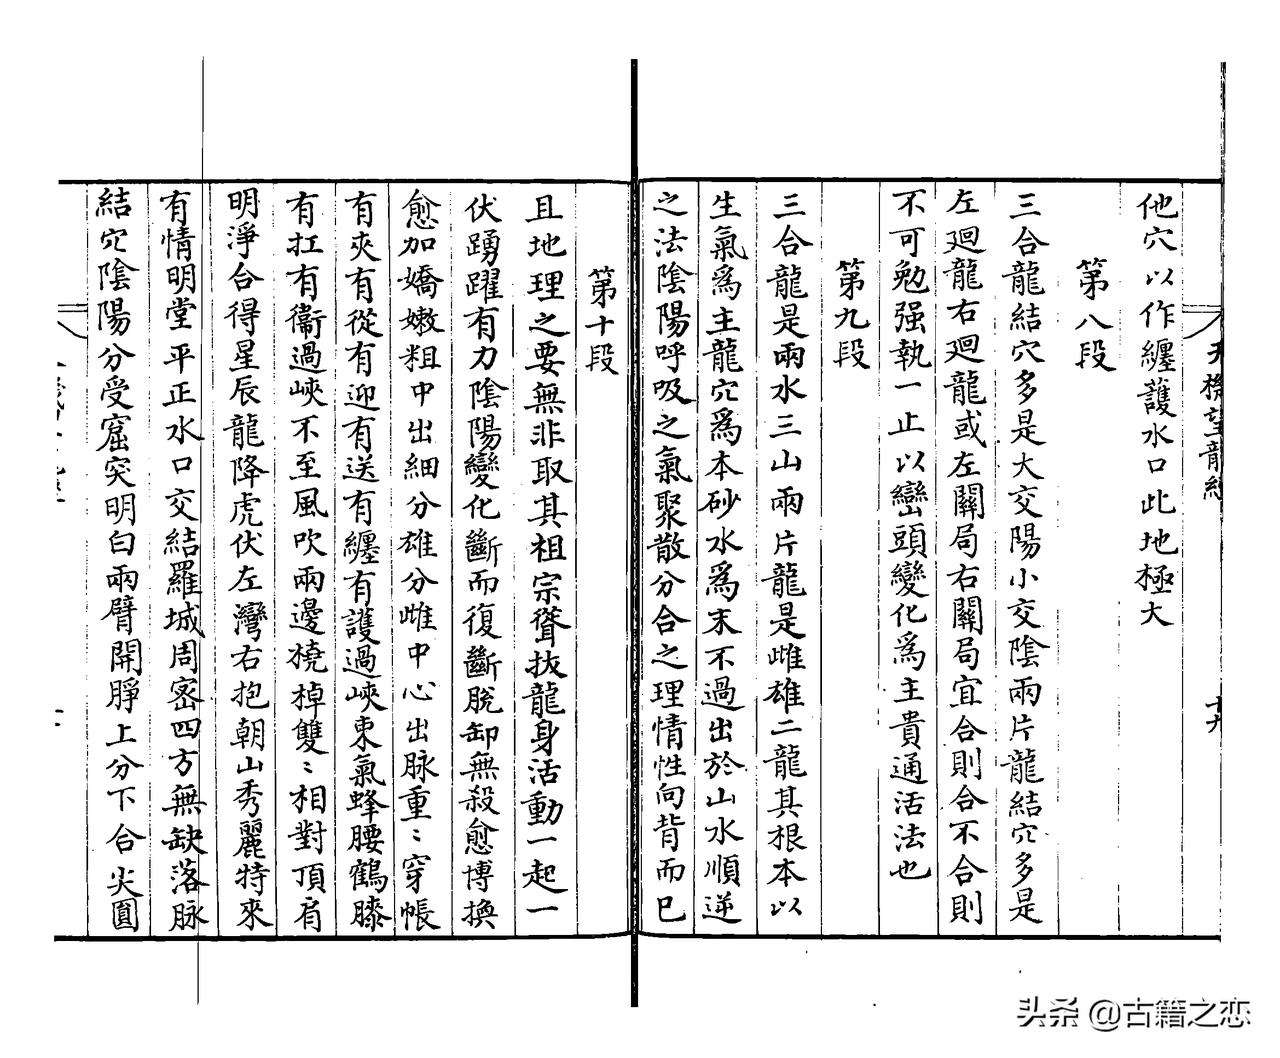 天機望龍經
十九
他穴以作纏護水口此地極大
第八段
三合龍結穴多是大交陽小交陰兩片龍結穴多是
左廻龍右廻龍或左關局右關局宜合則合不合則
不可勉强執一止以巒頭變化爲主貴通活法也
第九段
三合龍是兩水三山兩片龍是雌雄二龍其根本以
生氣爲主龍穴爲本砂水爲末不過出於山水順逆
之法陰陽呼吸之氣聚散分合之理情性向背而已
第十段
且地理之要無非取其祖宗聳拔龍身活動一起一
伏踴躍有力陰陽變化斷而復斷脫卸無殺愈博換
愈加嬌嫩粗中出細分雄分雌中心出脉重〻穿帳
有夾有從有迎有送有纏有護過峽東氣蜂腰鶴膝
有扛有衞過峽不至風吹兩邊橈棹雙〻相對頂肩
明淨合得星辰龍降虎伏左灣右抱朝山秀麗特來
有情明堂平正水口交結羅城周密四方無缺落脉
結穴陰陽分受窟突明白兩臂開睜上分下合尖圓
头条 @古籍之恋